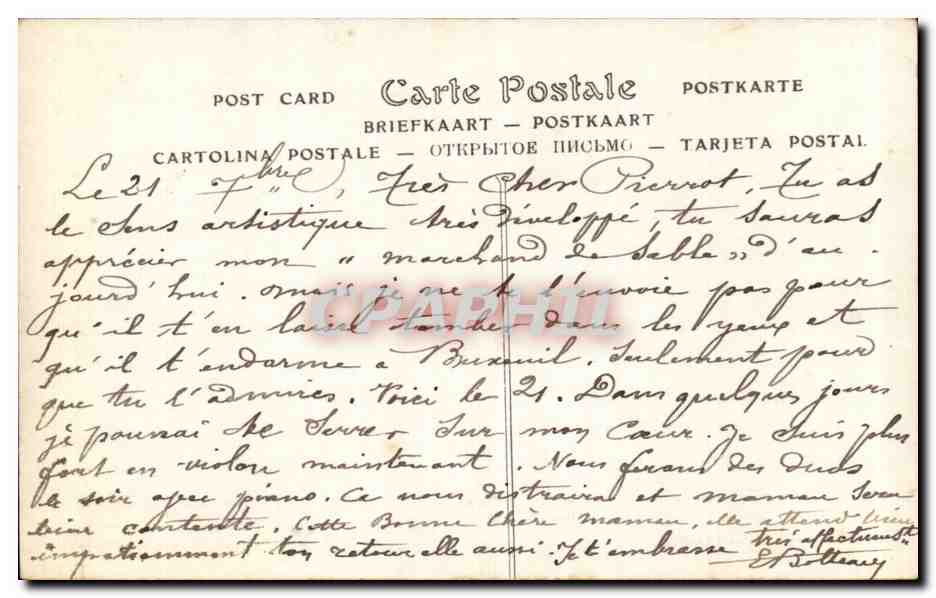 POST CARD Carte Postale POSTKARTE
BRIEFKAART — POSTKAART
CARTOLINA POSTALE — ОТКРЫТОЕ ПИСЬМО — TARJETA POSTAL
Le 21 7bre, Très Cher Pierrot, Tu as
le sens artistique très développé, tu sauras
apprécier mon " marchand de Sable " d'au-
jourd'hui. mais je ne te l'envoie pas pour
qu'il t'en laisse tomber dans les yeux et
qu'il t'endorme a Buxeuil. Seulement pour
que tu l'admires. Voici le 21. Dans quelques jours
je pourrai te serrer sur mon Cœur. Je suis plus
fort en violon maintenant. Nous ferons des duos
le soir avec piano. Ca nous distraira et maman sera
bien contente. Cette Bonne Chère maman, elle attend bien
impatiemment ton retour elle aussi. Je t'embrasse très affectueust
CPAPHIL